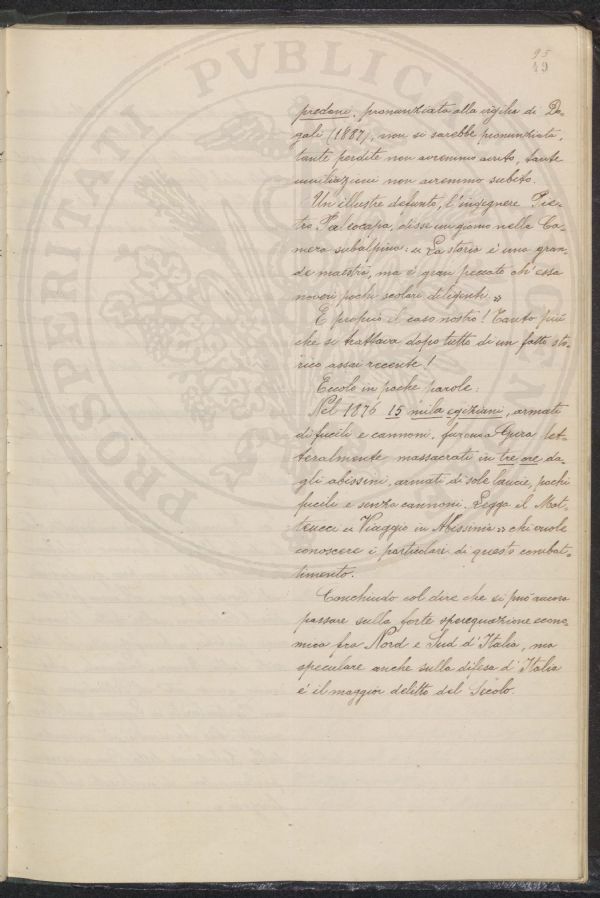 95
49
predoni, pronunziata alla vigilia di Do-
gali (1887), non si sarebbe pronunziata,
tante perdite non avremmo avuto, tante
umiliazioni non avremmo subito.
Un'illustre defunto, l'ingegnere Pie-
tro Paleocapa, disse un giorno nella Ca-
mera subalpina: « La storia è una gran-
de maestra, ma è gran peccato ch'essa
novori pochi scolari diligenti. »
È proprio il caso nostro! Tanto più
che si trattava dopo tutto di un fatto sto-
rico assai recente!
Eccolo in poche parole:
Nel 1876 15 mila egiziani, armati
di fucili e cannoni, furono a Gura let-
teralmente massacrati in tre ore da-
gli abissini, armati di sole lancie, pochi
fucili e senza cannoni. Legga il Mat-
teucci « Viaggio in Abissinia » chi vuole
conoscere i particolari di questo combat-
timento.
Conchiudo col dire che si può ancora
passare sulla forte sperequazione econo-
mica fra Nord e Sud d'Italia, ma
speculare anche sulla difesa d'Italia
è il maggior delitto del Secolo.
PROPRIETATI PVBLICA